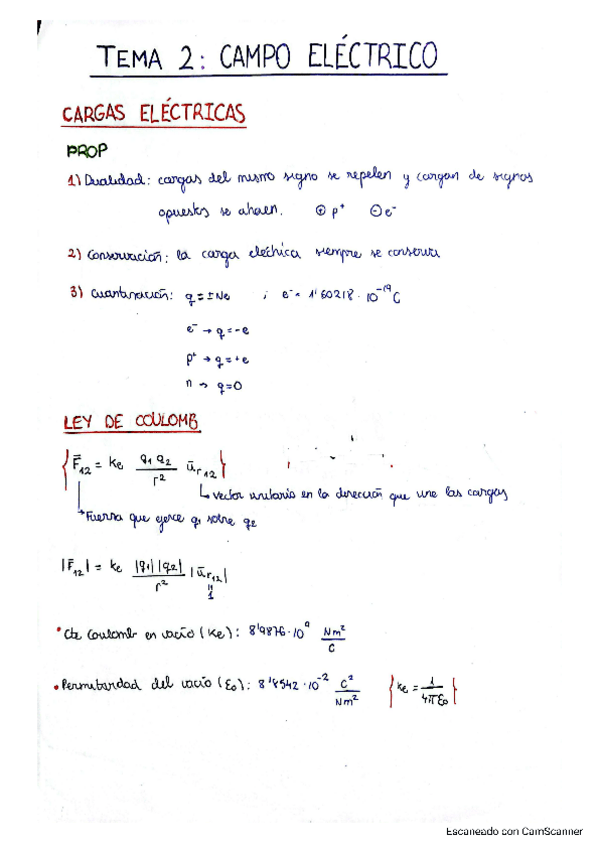 TEMA 2: CAMPO ELÉCTRICO
CARGAS ELÉCTRICAS
PROP
1) Dualidad: cargas del mismo signo se repelen y cargan de signos
opuestos se atraen. ⊕ p⁺ ⊖ e⁻
2) Conservación: la carga eléctrica siempre se conserva
3) Cuantización: q = ±Ne ; e⁻ = 1'60218 · 10⁻¹⁹ C
e⁻ → q = -e
p⁺ → q = +e
n → q = 0
LEY DE COULOMB
{ F̄₁₂ = Ke q₁ q₂ / r² ūr₁₂ }
↳ vector unitario en la dirección que une las cargas
→ Fuerza que ejerce q₁ sobre q₂
|F̄₁₂| = Ke |q₁| |q₂| / r² |ūr₁₂|
"
1
• Cte Coulomb en vacío (Ke): 8'9876 · 10⁹ Nm² / C
• Permitividad del vacío (ε₀): 8'8542 · 10⁻² C² / Nm² { Ke = 1 / 4πε₀ }
Escaneado con CamScanner